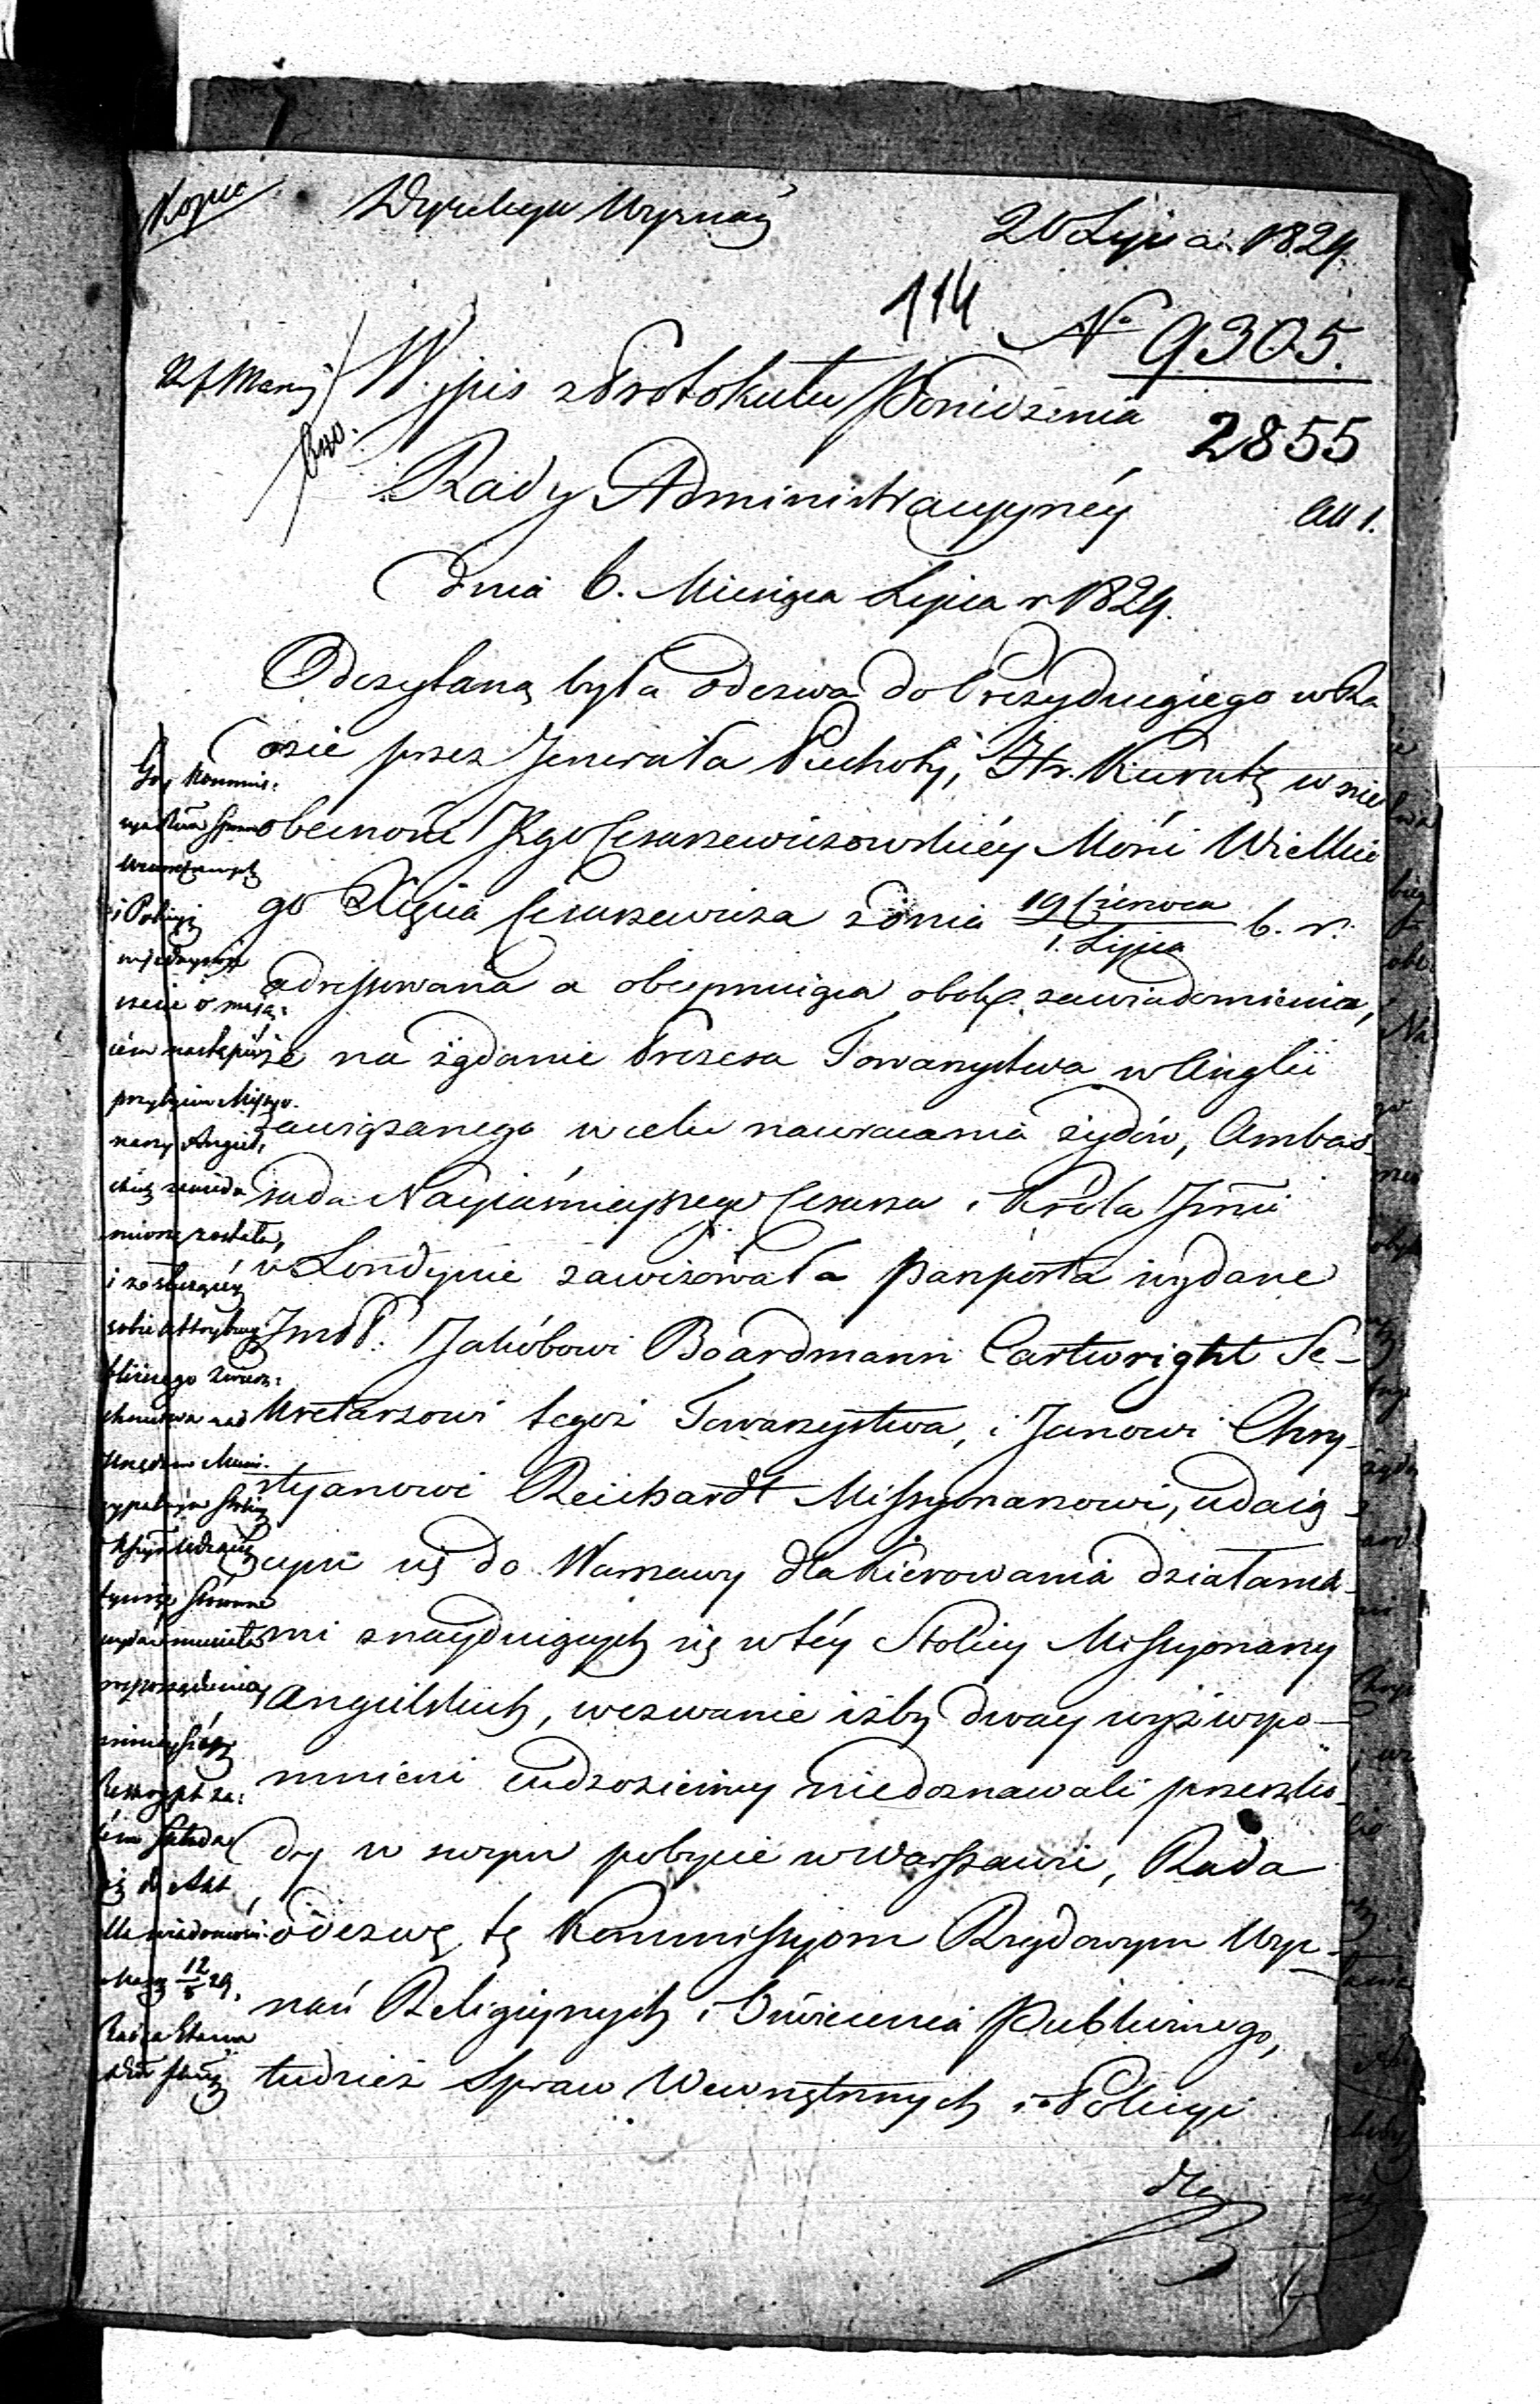 Kopia
Dyrekcya Wyznań
20 Lipca 1829.
114
N° 9305.
Wypis z Protokułu Posiedzenia
2855
Rady Administracyjnéy
All 1.
dnia 6. Miesiąca Lipca r 1829.
Odczytaną była odezwa do Prezyduiącego w Ra
dzie przez Jenerała Piechoty, Hr. Kurutę w nie
obecności Jego Cesarzewiczowskiéy Mości Wielkie
go Xięcia Cesarzewicza z dnia 19 Czerwca / 1. Lipca b. r.
adressowana a obeymuiąca obok zawiadomienia,
że na żądanie Prezesa Towarzystwa w Anglii
zawiązanego w celu nawracania żydów, Ambas-
sada Nayiaśnieyszego Cesarza i Króla Jmci
w Londynie zawizowała paszporta wydane
JmPP. Jakóbowi Boardmann Cartwright Se-
kretarzowi tegoż Towarzystwa, i Janowi Chry-
styanowi Reichardt Missyonarzowi, udaią-
cym się do Warszawy dla kierowania działania-
mi znayduiących się w téy Stolicy Missyonarzy
Angielskich, wezwanie iżby dway wyż wspo-
mnieni cudzoziemcy niedoznawali przeszko-
dy w swym pobycie w Warszawie, Rada
odezwę tę Kommissyom Rządowym Wyz-
nań Religijnych i Oświecenia Publicznego,
tudzież Spraw Wewnętrznych i Policyi
Gdy Kommis:
syia Rząd Spraw
Wewnętrznych
i Policyi
o maią:
cém nastąpić
przybyciu Missyo-
narzy Angiel:
skich zawiado
mioną została,
i
sobie
nad
Urzędem Muni-
cypalnym
stósowne
wydać musiała
rozporządzenia,
ninieyszy
Reskrypt za:
tém składa
się do Akt
dla wiadomości.
12/8 29.
Radca Stanu